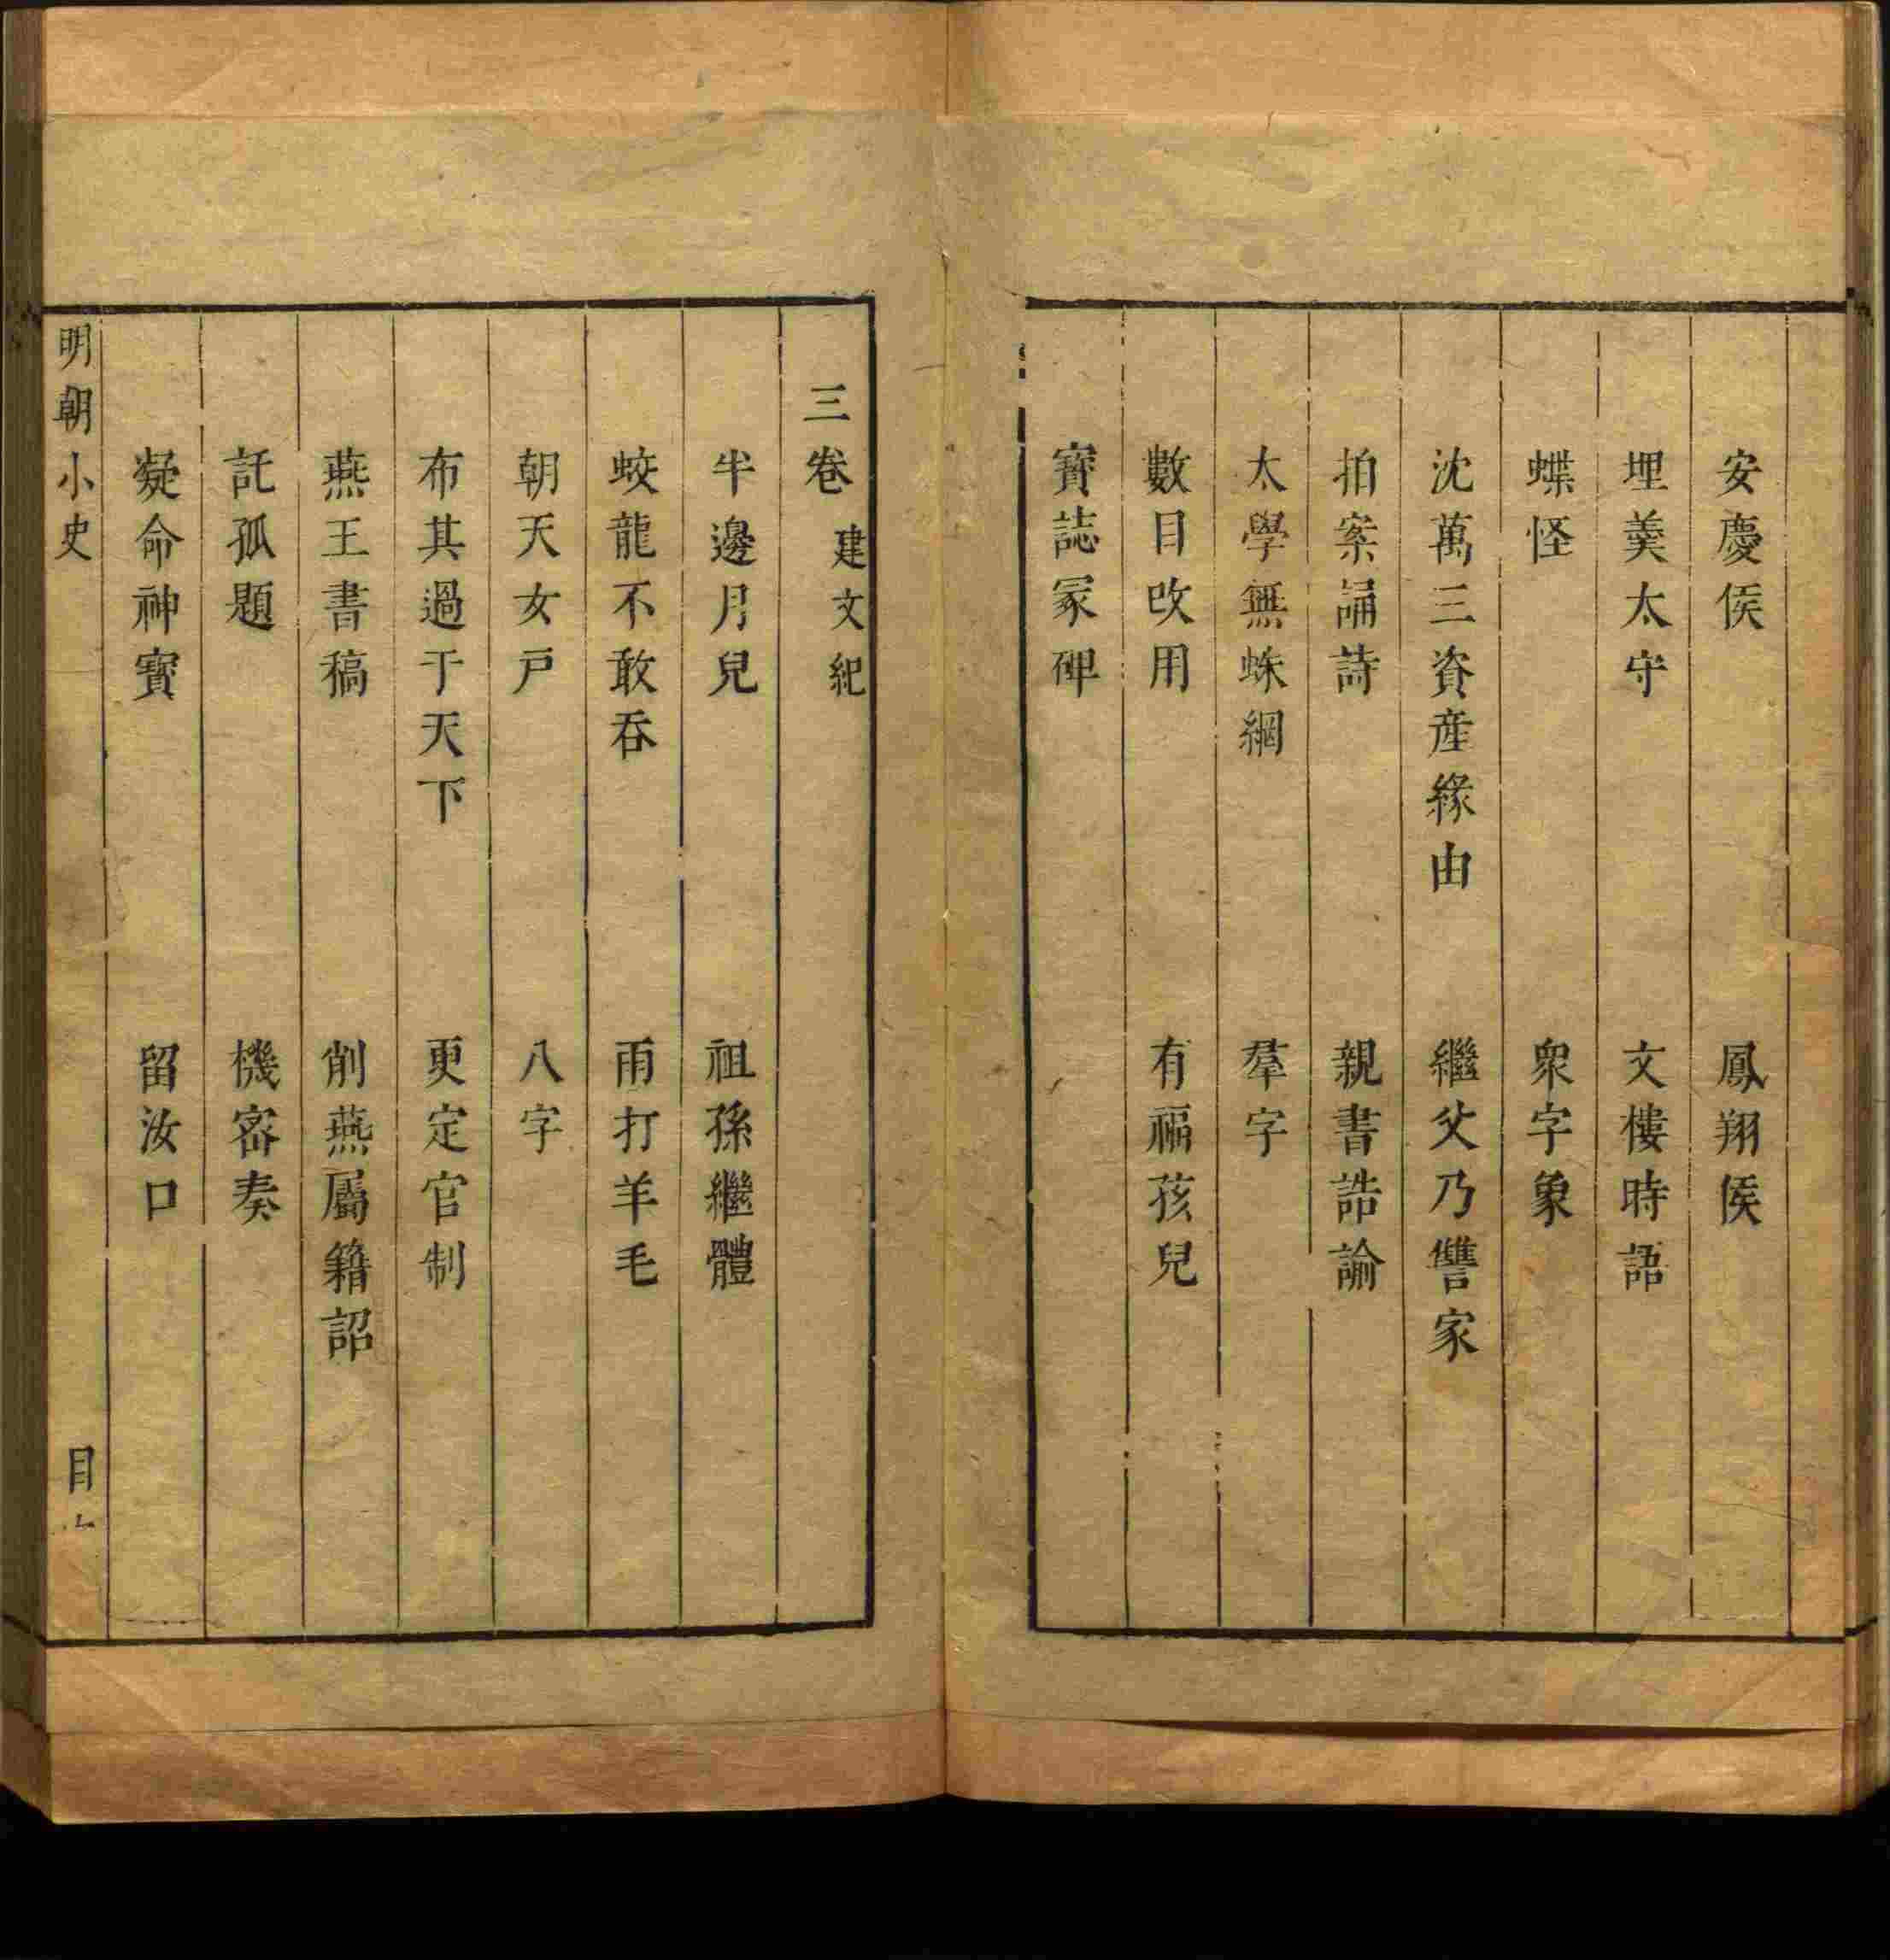 安慶侯 鳳翔侯
埋羹太守 文樓時語
蝶怪 衆字象
沈萬三資產緣由 繼父乃讐家
拍案誦詩 親書誥諭
太學無蛛網 羣字
數目改用 有福孩兒
寳誌冢碑
三卷 建文紀
半邊月兒 祖孫繼體
蛟龍不敢吞 雨打羊毛
朝天女戸 八字
布其過于天下 更定官制
燕王書稿 削燕屬籍詔
託孤題 機宻奏
凝命神寳 留汝口
明朝小史 目